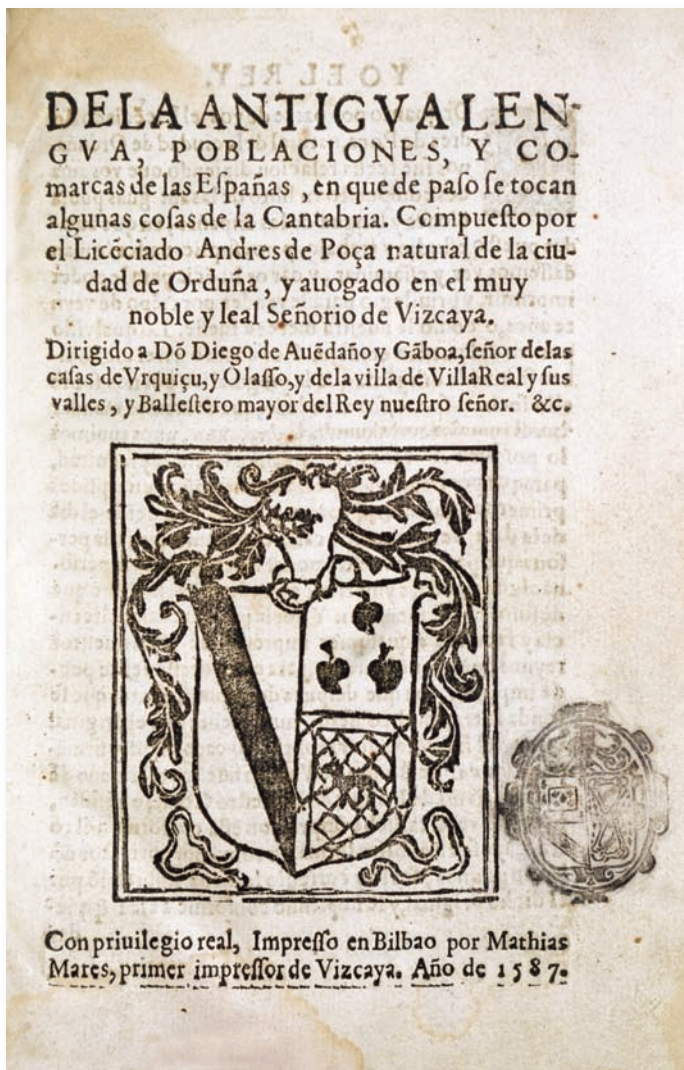 DELA ANTIGVA LEN-
GVA, POBLACIONES, Y CO-
marcas de las Eſpañas, en que de paſo ſe tocan
algunas coſas de la Cantabria. Compueſto por
el Licẽciado Andres de Poça natural de la ciu-
dad de Orduña, y auogado en el muy
noble y leal Señorio de Vizcaya.
Dirigido a Dõ Diego de Auẽdaño y Gãboa, ſeñor delas
caſas de Vrquiçu, y Olaſſo, y dela villa de VillaReal y ſus
valles, y Balleſtero mayor del Rey nueſtro ſeñor. &c.
Con priuilegio real, Impreſſo en Bilbao por Mathias
Mares, primer impreſſor de Vizcaya. Año de 1587.